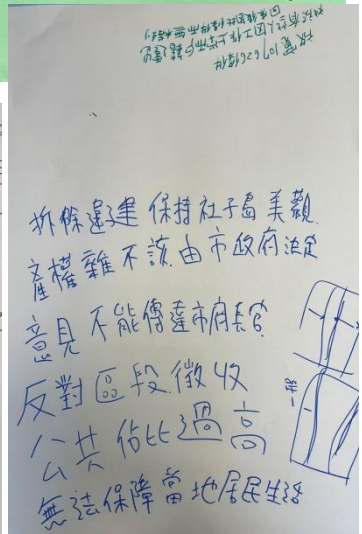 拆除違建 保持社子島美觀.
產權雜不該由市政府法定
意見不能傳達市府長官
反對區段徵收
公共佔比過高
無法保障當地居民生活